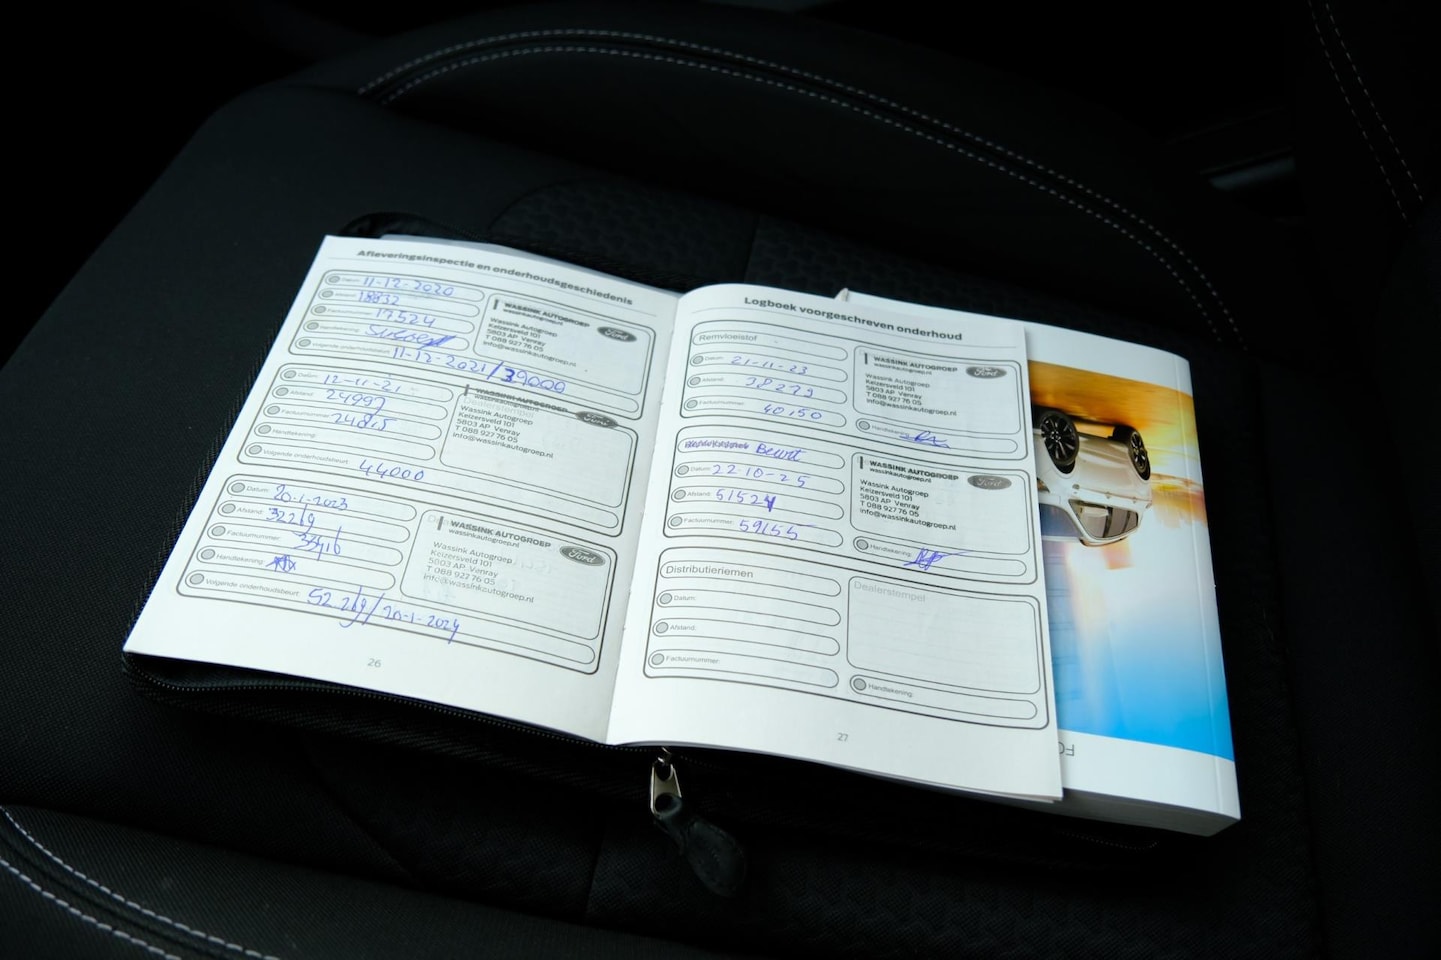 Afleveringsinspectie en onderhoudsgeschiedenis
Datum: 11-12-2020
Afstand: 18832
Factuurnummer: 17524
Handtekening:
Volgende onderhoudsbeurt: 11-12-2021/39000
WASSINK AUTOGROEP
wassinkautogroep.nl
Wassink Autogroep
Keizersveld 101
5803 AP Venray
T 088 927 76 05
info@wassinkautogroep.nl
Ford
Datum: 12-11-21
Afstand: 24997
Factuurnummer:
Handtekening:
Volgende onderhoudsbeurt: 44000
WASSINK AUTOGROEP
wassinkautogroep.nl
Wassink Autogroep
Keizersveld 101
5803 AP Venray
T 088 927 76 05
info@wassinkautogroep.nl
Datum: 20-1-2023
Afstand: 32219
Factuurnummer:
Handtekening:
Volgende onderhoudsbeurt: 52219/20-1-2024
WASSINK AUTOGROEP
wassinkautogroep.nl
Wassink Autogroep
Keizersveld 101
5803 AP Venray
T 088 927 76 05
info@wassinkautogroep.nl
Ford
26
Logboek voorgeschreven onderhoud
Remvloeistof
Datum: 21-11-23
Afstand: 38279
Factuurnummer: 40150
WASSINK AUTOGROEP
wassinkautogroep.nl
Wassink Autogroep
Keizersveld 101
5803 AP Venray
T 088 927 76 05
info@wassinkautogroep.nl
Ford
Handtekening:
Beurt
Datum: 22-10-25
Afstand: 51524
Factuurnummer: 59155
WASSINK AUTOGROEP
wassinkautogroep.nl
Wassink Autogroep
Keizersveld 101
5803 AP Venray
T 088 927 76 05
info@wassinkautogroep.nl
Ford
Handtekening:
Distributieriemen
Datum:
Afstand:
Factuurnummer:
Dealerstempel
Handtekening:
27